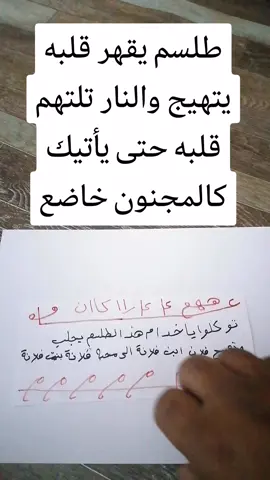 طلسم يقهر قلبه
يتهيج والنار تلتهم
قلبه حتى يأتيك
كالمجنون خاضع
توكلوا يا خدام هذا الطلسم بجلب
فلان ابن فلانة الى محبة فلانة بنت فلانة